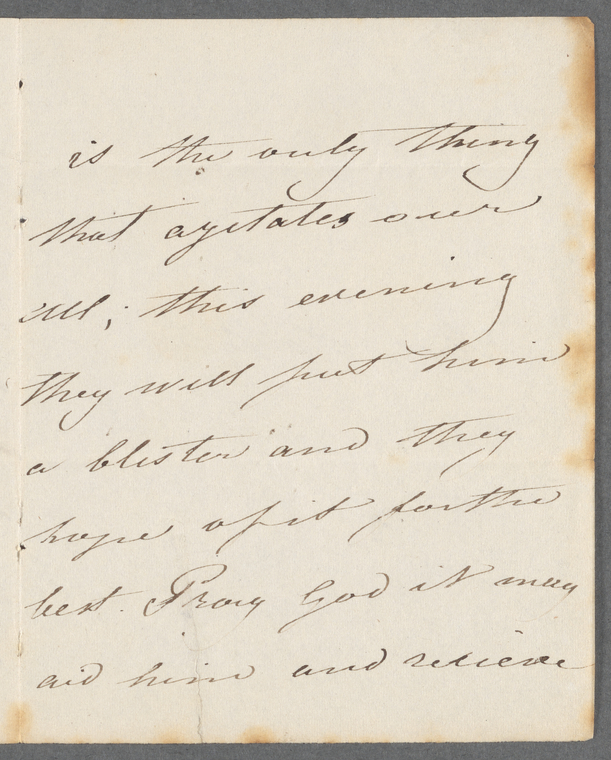 is the only thing
that agetates over
all; this evening
they will put him
a blister and they
hope of it for the
best. Pray God it may
aid him and relieve